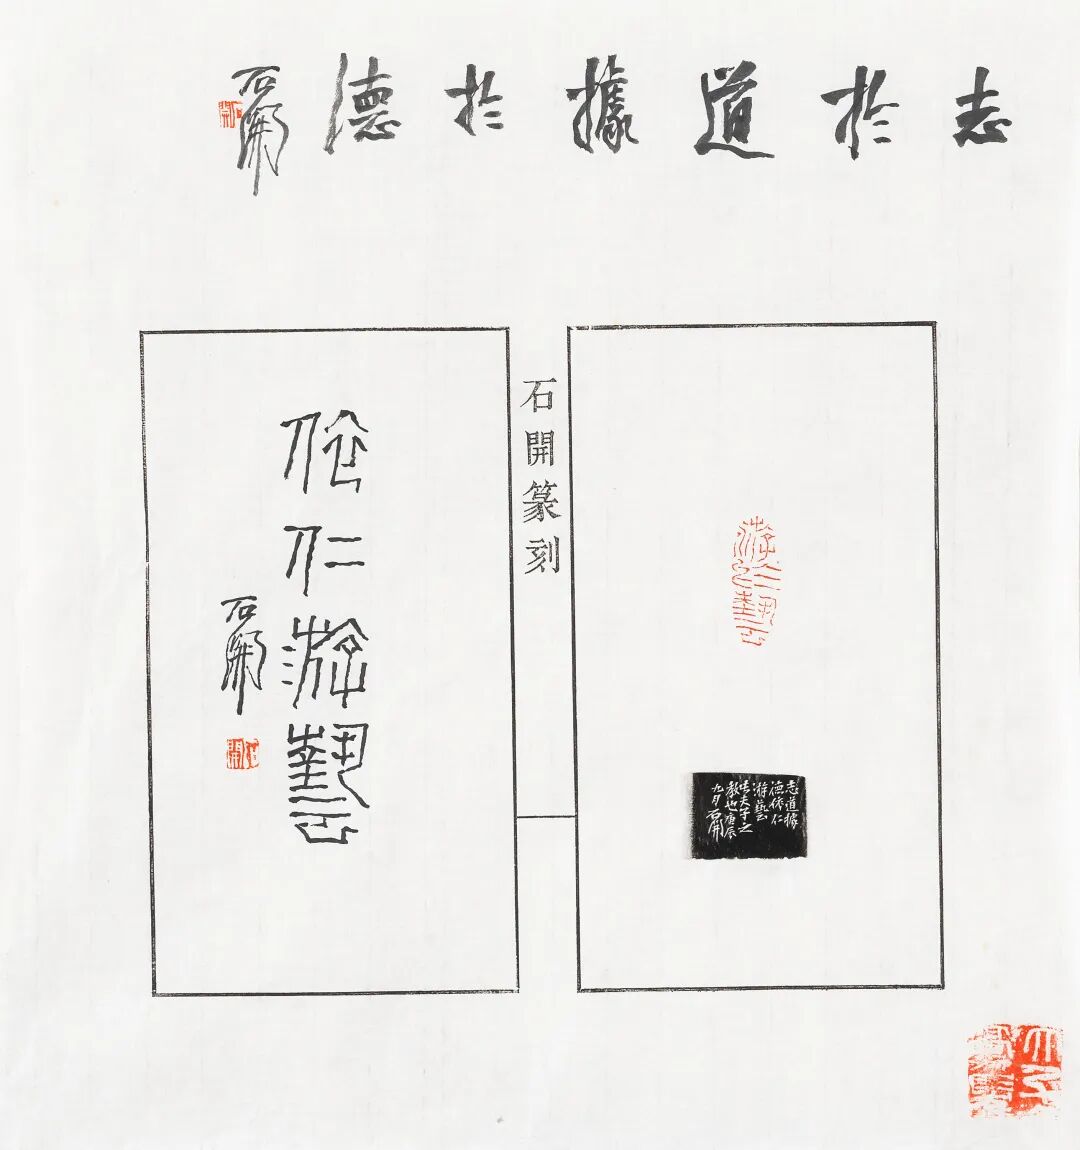 志於道據於德
石開
石開篆刻
游於藝
志道據
德依仁
游藝
夫子之
教也庚辰
九月石開
依仁游藝
石開
石開